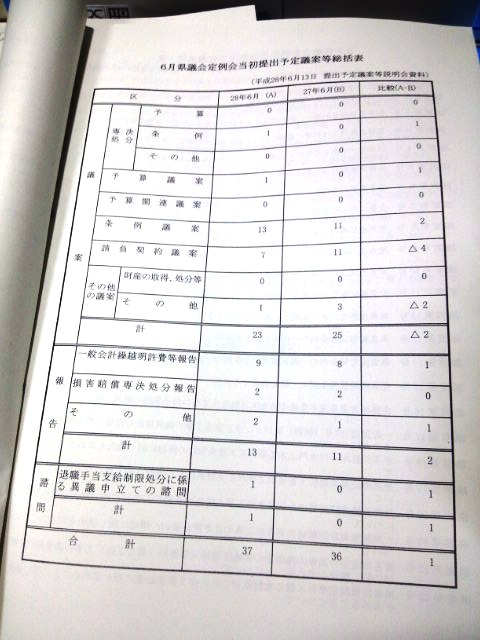 6月県議会定例会当初提出予定議案等総括表
(平成28年6月13日 提出予定議案等説明会資料)
区 分 28年6月 (A) 27年6月(B) 比較(A-B)
議案
専決処分
予 算 0 0 0
条 例 1 0 1
その他 0 0 0
予算議案 1 0 1
予算関連議案 0 0 0
条例議案 13 11 2
請負契約議案 7 11 △4
その他の議案
財産の取得、処分等 0 0 0
その他 1 3 △2
計 23 25 △2
報告
一般会計繰越明許費等報告 9 8 1
損害賠償専決処分報告 2 2 0
その他 2 1 1
計 13 11 2
諮問
退職手当支給制限処分に係
る異議申立ての諮問 1 0 1
計 1 0 1
合 計 37 36 1